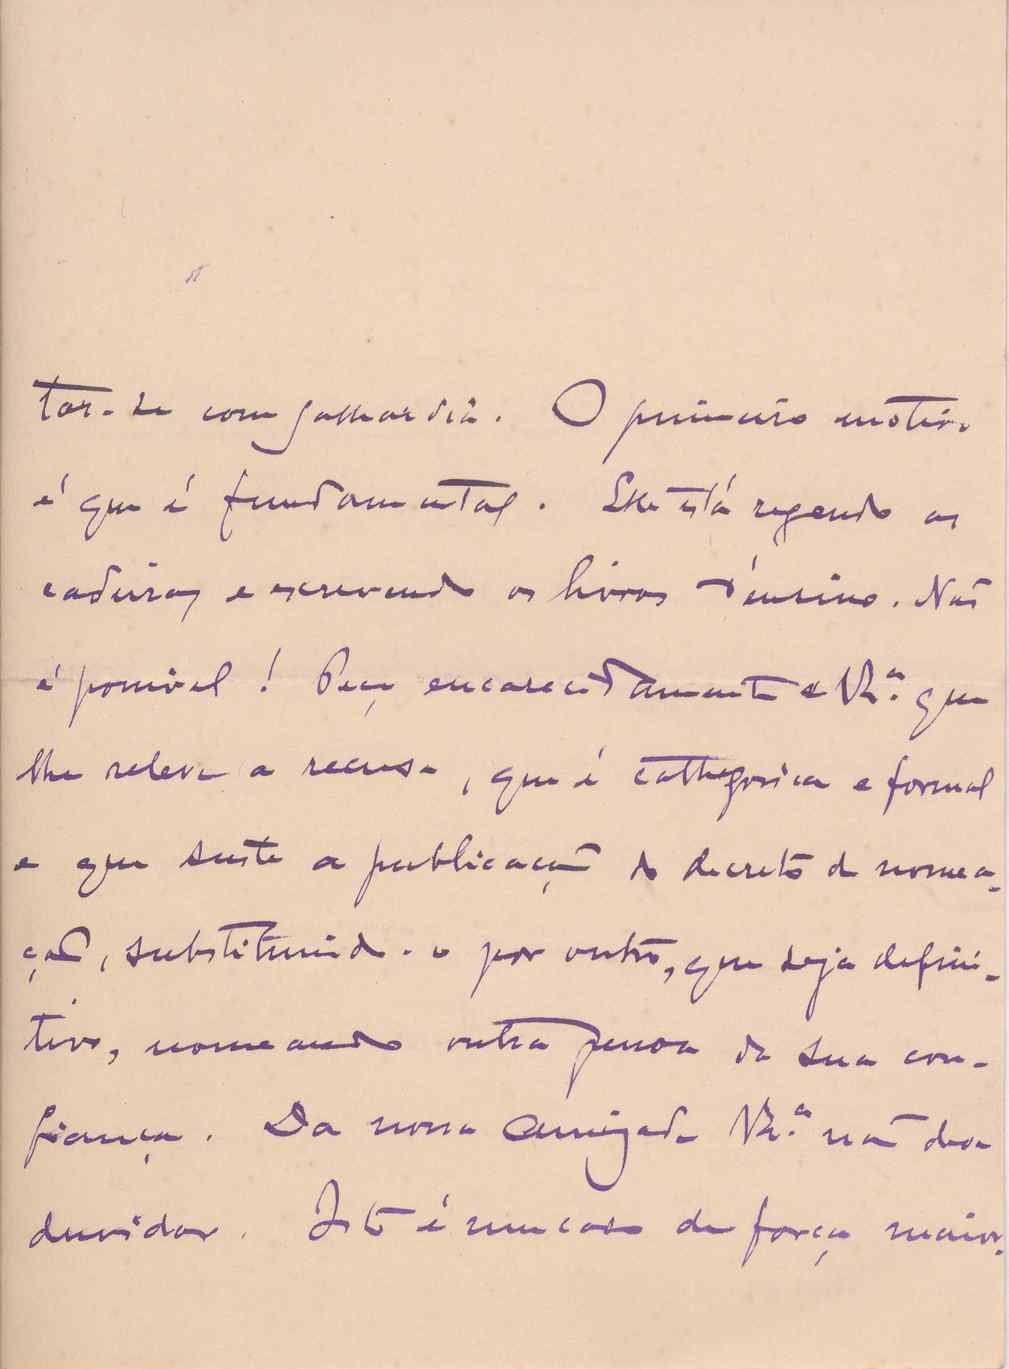 tar-se com galhardia. O primeiro motivo
é que é fundamental. Elle está regendo as
cadeiras e escrevendo os livros d'ensino. Não
é possivel! Peço encarecidamente a V.Ex.ª que
lhe releve a recusa, que é cathegorica e formal
e que suste a publicação do decreto de nomea-
ção, substituindo-o por outro, que seja defini-
tivo, nomeando outra pessoa da sua con-
fiança. Da nossa amizade V.Ex.ª não deve
duvidar. Isto é um caso de força maior.